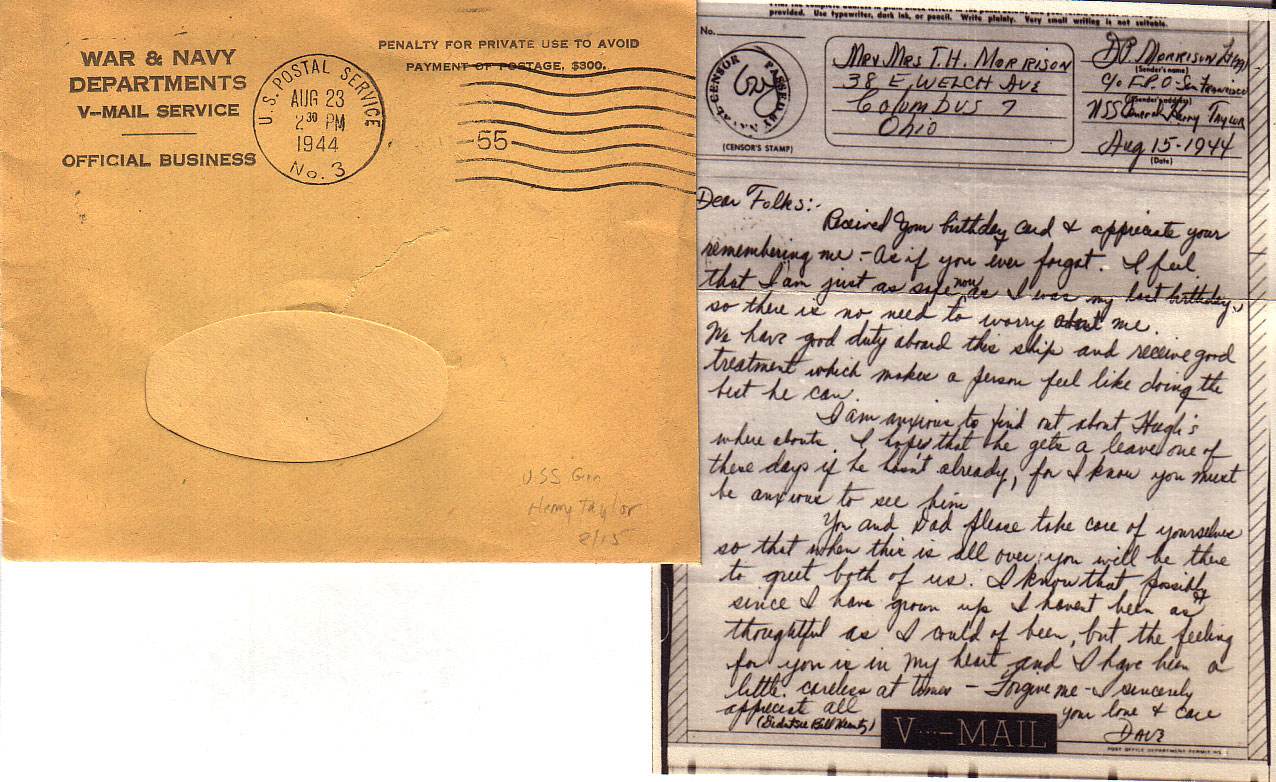 WAR & NAVY
DEPARTMENTS
V--MAIL SERVICE
OFFICIAL BUSINESS
U.S. POSTAL SERVICE
AUG 23
2 30 PM
1944
No. 3
PENALTY FOR PRIVATE USE TO AVOID
PAYMENT OF POSTAGE, $300.
55
U.S.S Gen
Henry Taylor
8/15
provided. Use typewriter, dark ink, or pencil. Write plainly. Very small writing is not suitable.
No.
PASSED BY NAVAL CENSOR
(CENSOR'S STAMP)
Mr & Mrs T.H. MORRISON
38 E. WELCH AVE
Columbus 7
Ohio
D.P. MORRISON
(Sender's name)
C/o F.P.O San Francisco
(Sender's address)
USS General Henry TAYLOR
Aug 15-1944
(Date)
Dear Folks:-
Received your birthday card & appreciate your
remembering me - As if you ever forgot. I feel
that I am just as safe now as I was my last birthday,
so there is no need to worry about me.
We have good duty aboard this ship and receive good
treatment which makes a person feel like doing the
best he can.
I am anxious to find out about Hugh's
where abouts. I hope that he gets a leave one of
these days if he hasn't already, for I know you must
be anxious to see him
You and Dad please take care of yourselves
so that when this is all over, you will be there
to greet both of us. I know that possibly
since I have grown up I havent been as
thoughtful as I could of been, but the feeling
for you is in my heart and I have been a
little careless at times - Forgive me - I sincerely
appreciate all your love & care
DAVE
V---MAIL
POST OFFICE DEPARTMENT PERMIT NO.